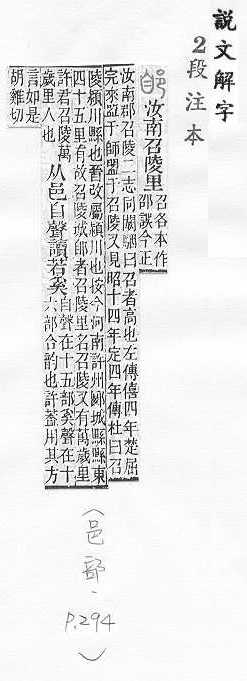 說文解字
2段注本
郋 汝南召陵里
召各本作
邵誤今正
汝南郡召陵二志同闞駰曰召者高也左傳僖四年楚屈
完來盟于師盟于召陵又見昭十四年定四年傳杜曰召
陵潁川縣也晉改屬潁川也按今河南許州郾城縣縣東
四十五里有故召陵城郋者召陵里名召陵又有萬歲里
許君召陵萬
歲里人也
从邑自聲讀若奚
自聲在十五部奚聲在十
六部合韵也許葢用其方
言如是
胡雞切
(邑部、P.294)